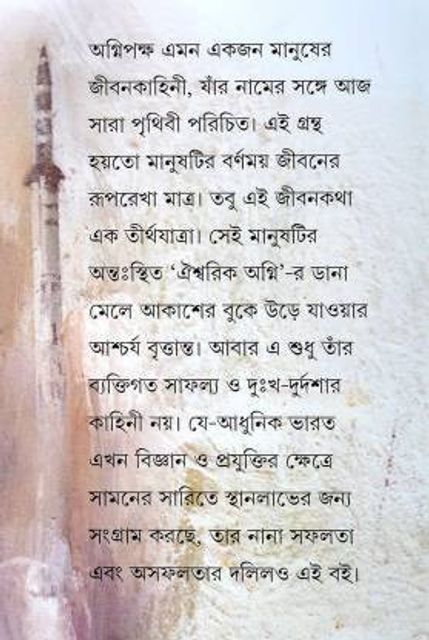 অগ্নিপক্ষ এমন একজন মানুষের
জীবনকাহিনী, যাঁর নামের সঙ্গে আজ
সারা পৃথিবী পরিচিত। এই গ্রন্থ
হয়তো মানুষটির বর্ণময় জীবনের
রূপরেখা মাত্র। তবু এই জীবনকথা
এক তীর্থযাত্রা। সেই মানুষটির
অন্তঃস্থিত ‘ঐশ্বরিক অগ্নি’-র ডানা
মেলে আকাশের বুকে উড়ে যাওয়ার
আশ্চর্য বৃত্তান্ত। আবার এ শুধু তাঁর
ব্যক্তিগত সাফল্য ও দুঃখ-দুর্দশার
কাহিনী নয়। যে-আধুনিক ভারত
এখন বিজ্ঞান ও প্রযুক্তির ক্ষেত্রে
সামনের সারিতে স্থানলাভের জন্য
সংগ্রাম করছে, তার নানা সফলতা
এবং অসফলতার দলিলও এই বই।